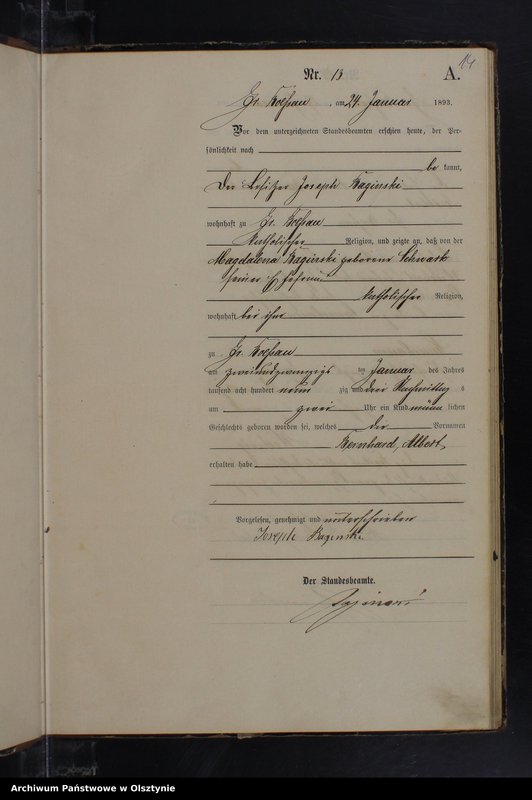 14
Nr. 13 A.
Gr. Kößau, am 24. Januar 1893.
Vor dem unterzeichneten Standesbeamten erschien heute, der Per-
sönlichkeit nach
be kannt,
Der Besitzer Joseph Baginski
wohnhaft zu Gr. Kößau
katholischer Religion, und zeigte an, daß von der
Magdalena Baginski geborene Schwark
seiner Ehefrau
katholischer Religion,
wohnhaft bei ihm
zu Gr. Kößau
am zweiundzwanzigs ten Januar des Jahres
tausend acht hundert neun zig und drei Nachmittag s
um zwei Uhr ein Kind männ lichen
Geschlechts geboren worden sei, welches die Vornamen
Bernhard, Albert
erhalten habe
Vorgelesen, genehmigt und unterschrieben
Joseph Baginski
Der Standesbeamte.
Archiwum Państwowe w Olsztynie